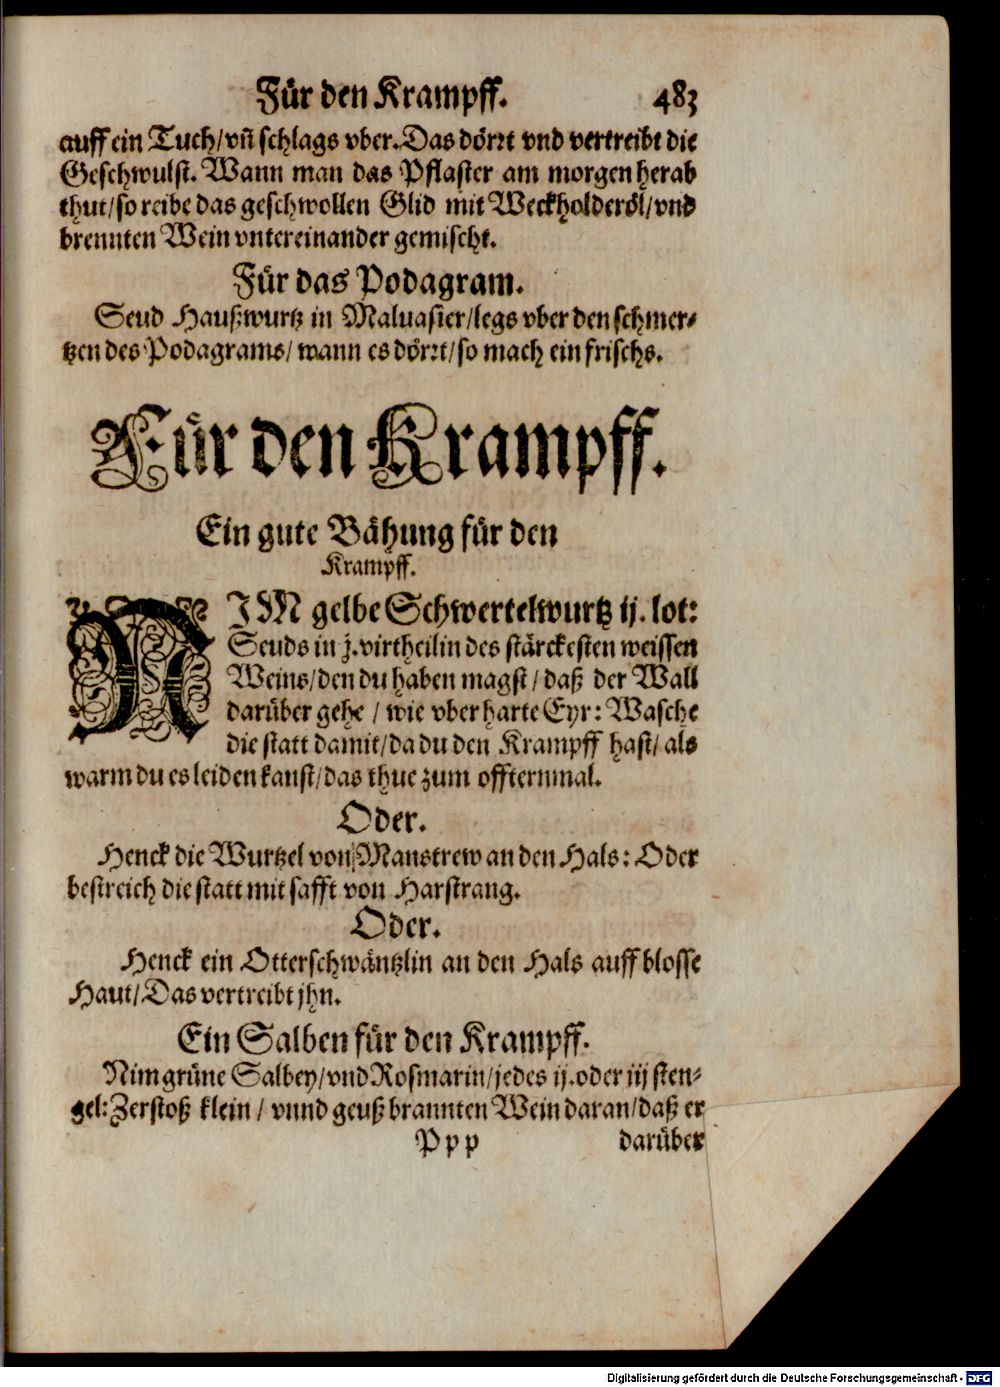 Für den Krampff. 483
auff ein Tuch/ vñ schlags vber. Das dörꝛt vnd vertreibt die
Geschwulst. Wann man das Pflaster am morgen herab
thut/ so reibe das geschwollen Glid mit Weckholderöl/ vnd
brennten Wein vntereinander gemischt.
Für das Podagram.
Seud Haußwurtz in Maluasier/ legs vber den schmer-
tzen des Podagrams/ wann es dörꝛt/ so mach ein frischs.
Für den Krampff.
Ein gute Bähung für den
Krampff.
NIM gelbe Schwertelwurtz ij. lot:
Seuds in j. virtheil in des stärckesten weissen
Weins/ den du haben magst/ daß der Wall
darüber gehe / wie vber harte Eyr: Wasche
die statt damit/ da du den Krampff hast/ als
warm du es leiden kanst/ das thue zum offternmal.
Oder.
Henck die Wurtzel von Manstrew an den Hals: Oder
bestreich die statt mit safft von Harstrang.
Oder.
Henck ein Otterschwäntzlin an den Hals auff blosse
Haut/ Das vertreibt jhn.
Ein Salben für den Krampff.
Nim grüne Salbey/ vnd Rosmarin/ jedes ij. oder iij sten-
gel: Zerstoß klein / vnnd geuß brannten Wein daran/ daß er
Ppp darüber
Digitalisierung gefördert durch die Deutsche Forschungsgemeinschaft - DFG